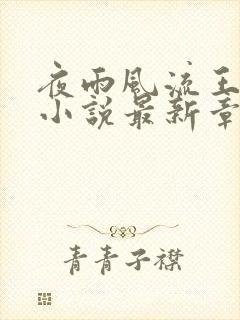 夜雨風流王
小說最新章
青青子襟